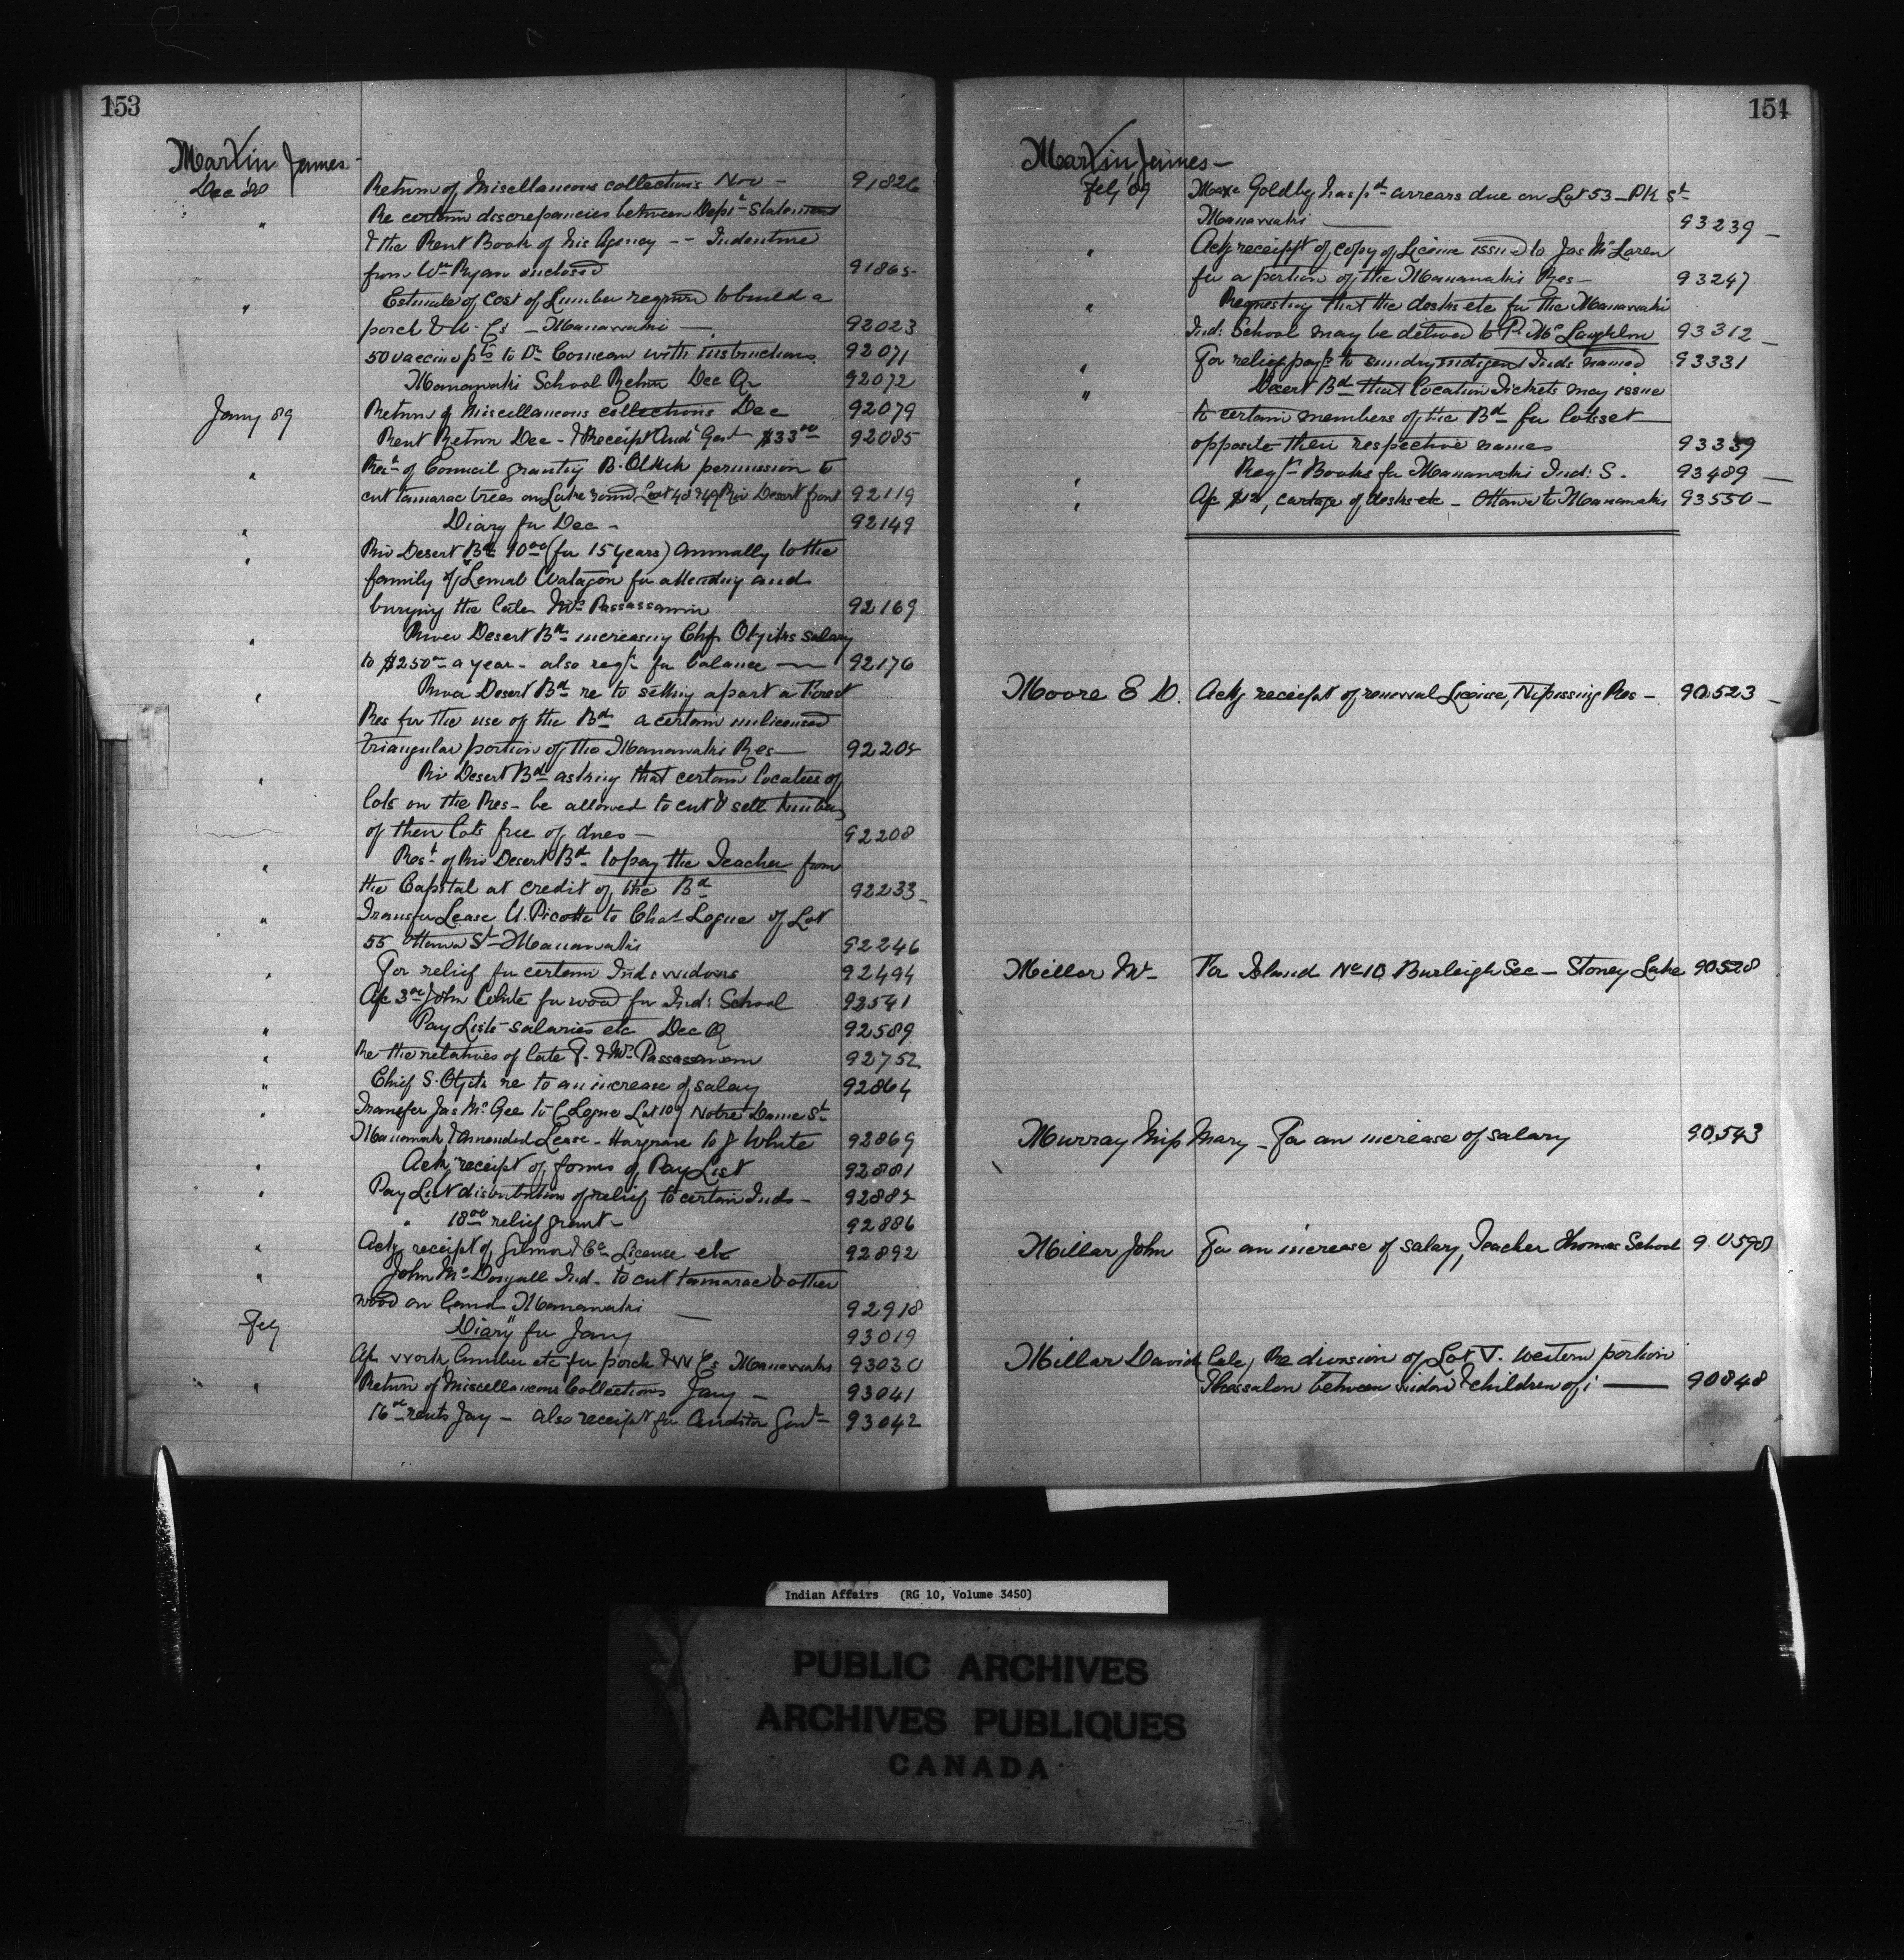 153
Martin James -
Dec '88 Return of Miscellaneous collections Nov - 91826
" Re certain discrepancies between Dept Statement
& the Rent Book of his Agency -- Indenture
from Wm Ryan enclosed 91865
" Estimate of cost of Lumber required to build a
porch & W. Cs - Maniwaki - 92023
50 vaccine pts to Dr Comeau with instructions 92071
Maniwaki School Return Dec Qr 92072
Jany 89 Return of Miscellaneous collections Dec 92079
Rent Return Dec - & Receipt Audr Genl $33.00 92085
" Rest of Council granting B. permission to
cut tamarac trees on Lake road Lot 48 & 49 Riv Desert front 92119
" Diary for Dec - 92149
" Riv Desert Bd 10.00 (for 15 years) annually to the
family of Watagon for attending and
burying the late Mrs Passassamin 92169
" River Desert Bd increasing Chf salary
to $250.00 a year - also reqt for balance 92176
" River Desert Bd re to setting apart a Forest
Res for the use of the Bd a certain unlicensed
triangular portion of the Maniwaki Res 92205
" Riv Desert Bd asking that certain locatees of
lots on the Res - be allowed to cut & sell timber
of their lots free of dues - 92208
" Rest of Riv Desert Bd to pay the Teacher from
the Capital at credit of the Bd 92233 -
" Transfer Lease U. Picotte to Chas Logue of Lot
55 Ottawa St Maniwaki 92246
" For relief for certain Ind: widows 92494
" A/c 3.00 John White for wood for Ind: School 92541
" Pay Lists - salaries etc Dec Q 92589
" Re the relatives of late P. & Mrs Passassamin 92752
" Chief S. re to an increase of salary 92864
" Transfer Jas McGee to C Logue Lot 109 Notre Dame St
& Amended Lease - Hargrave to J White 92869
" Ackg receipt of forms of Pay List 92881
" Pay List distribution of relief to certain Inds - 92885
" 18.00 relief grant - 92886
" Ackg receipt of Gilmor & Co License etc 92892
" John McDougall Ind. to cut tamarac & other
wood on land Maniwaki - 92918
Feby Diary for Jany 93019
A/c work lumber etc for porch & W Cs Maniwaki 93030
" Return of Miscellaneous Collections Jany - 93041
16.00 rents Jany - also receipt for Auditor Genl - 93042
154
Martin, James -
Feby '89 Goldby has pd arrears due on Lot 53 - PK St
Maniwaki 93239 -
" Ackg receipt of copy of License issued to Jas McLaren
for a portion of the Maniwaki Res - 93247
" Requesting that the desks etc for the Maniwaki
Ind: School may be delivered to P. McLaughlin 93312 -
" For relief payt to sundry indigent Inds named 93331
" Desert Bd that Location Tickets may issue
to certain members of the Bd for lots set
opposite their respective names 93339
" Reqt - Books for Maniwaki Ind: S. 93489 -
" A/c $12, cartage of desks etc - Ottawa to Maniwaki 93550 -
Moore E D. Ackg receipt of renewal License, Nipissing Res - 90523 -
Millar Mr - For Island No 10 Burleigh Sec - Stoney Lake 90528
Murray Miss Mary - For an increase of salary 90543
Millar John For an increase of salary, Teacher Thomas School 90598
Millar David, late, Re division of Lot V. western portion
Thessalon between widow & children of 90848
Indian Affairs (RG 10, Volume 3450)
PUBLIC ARCHIVES
ARCHIVES PUBLIQUES
CANADA